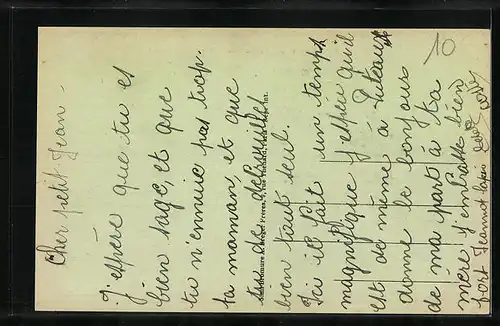 10
Cher petit Jean -
J'espère que tu es
bien sage, et que
tu n'ennuie pas trop
ta maman, et que
tu te débouilles
bien tout seul.
Ici il fait un temps
magnifique j'espère qu'il
est de même à Puteaux
donne le bonjour
de ma part à ta
mère j'embrasse bien
fort Jeannot